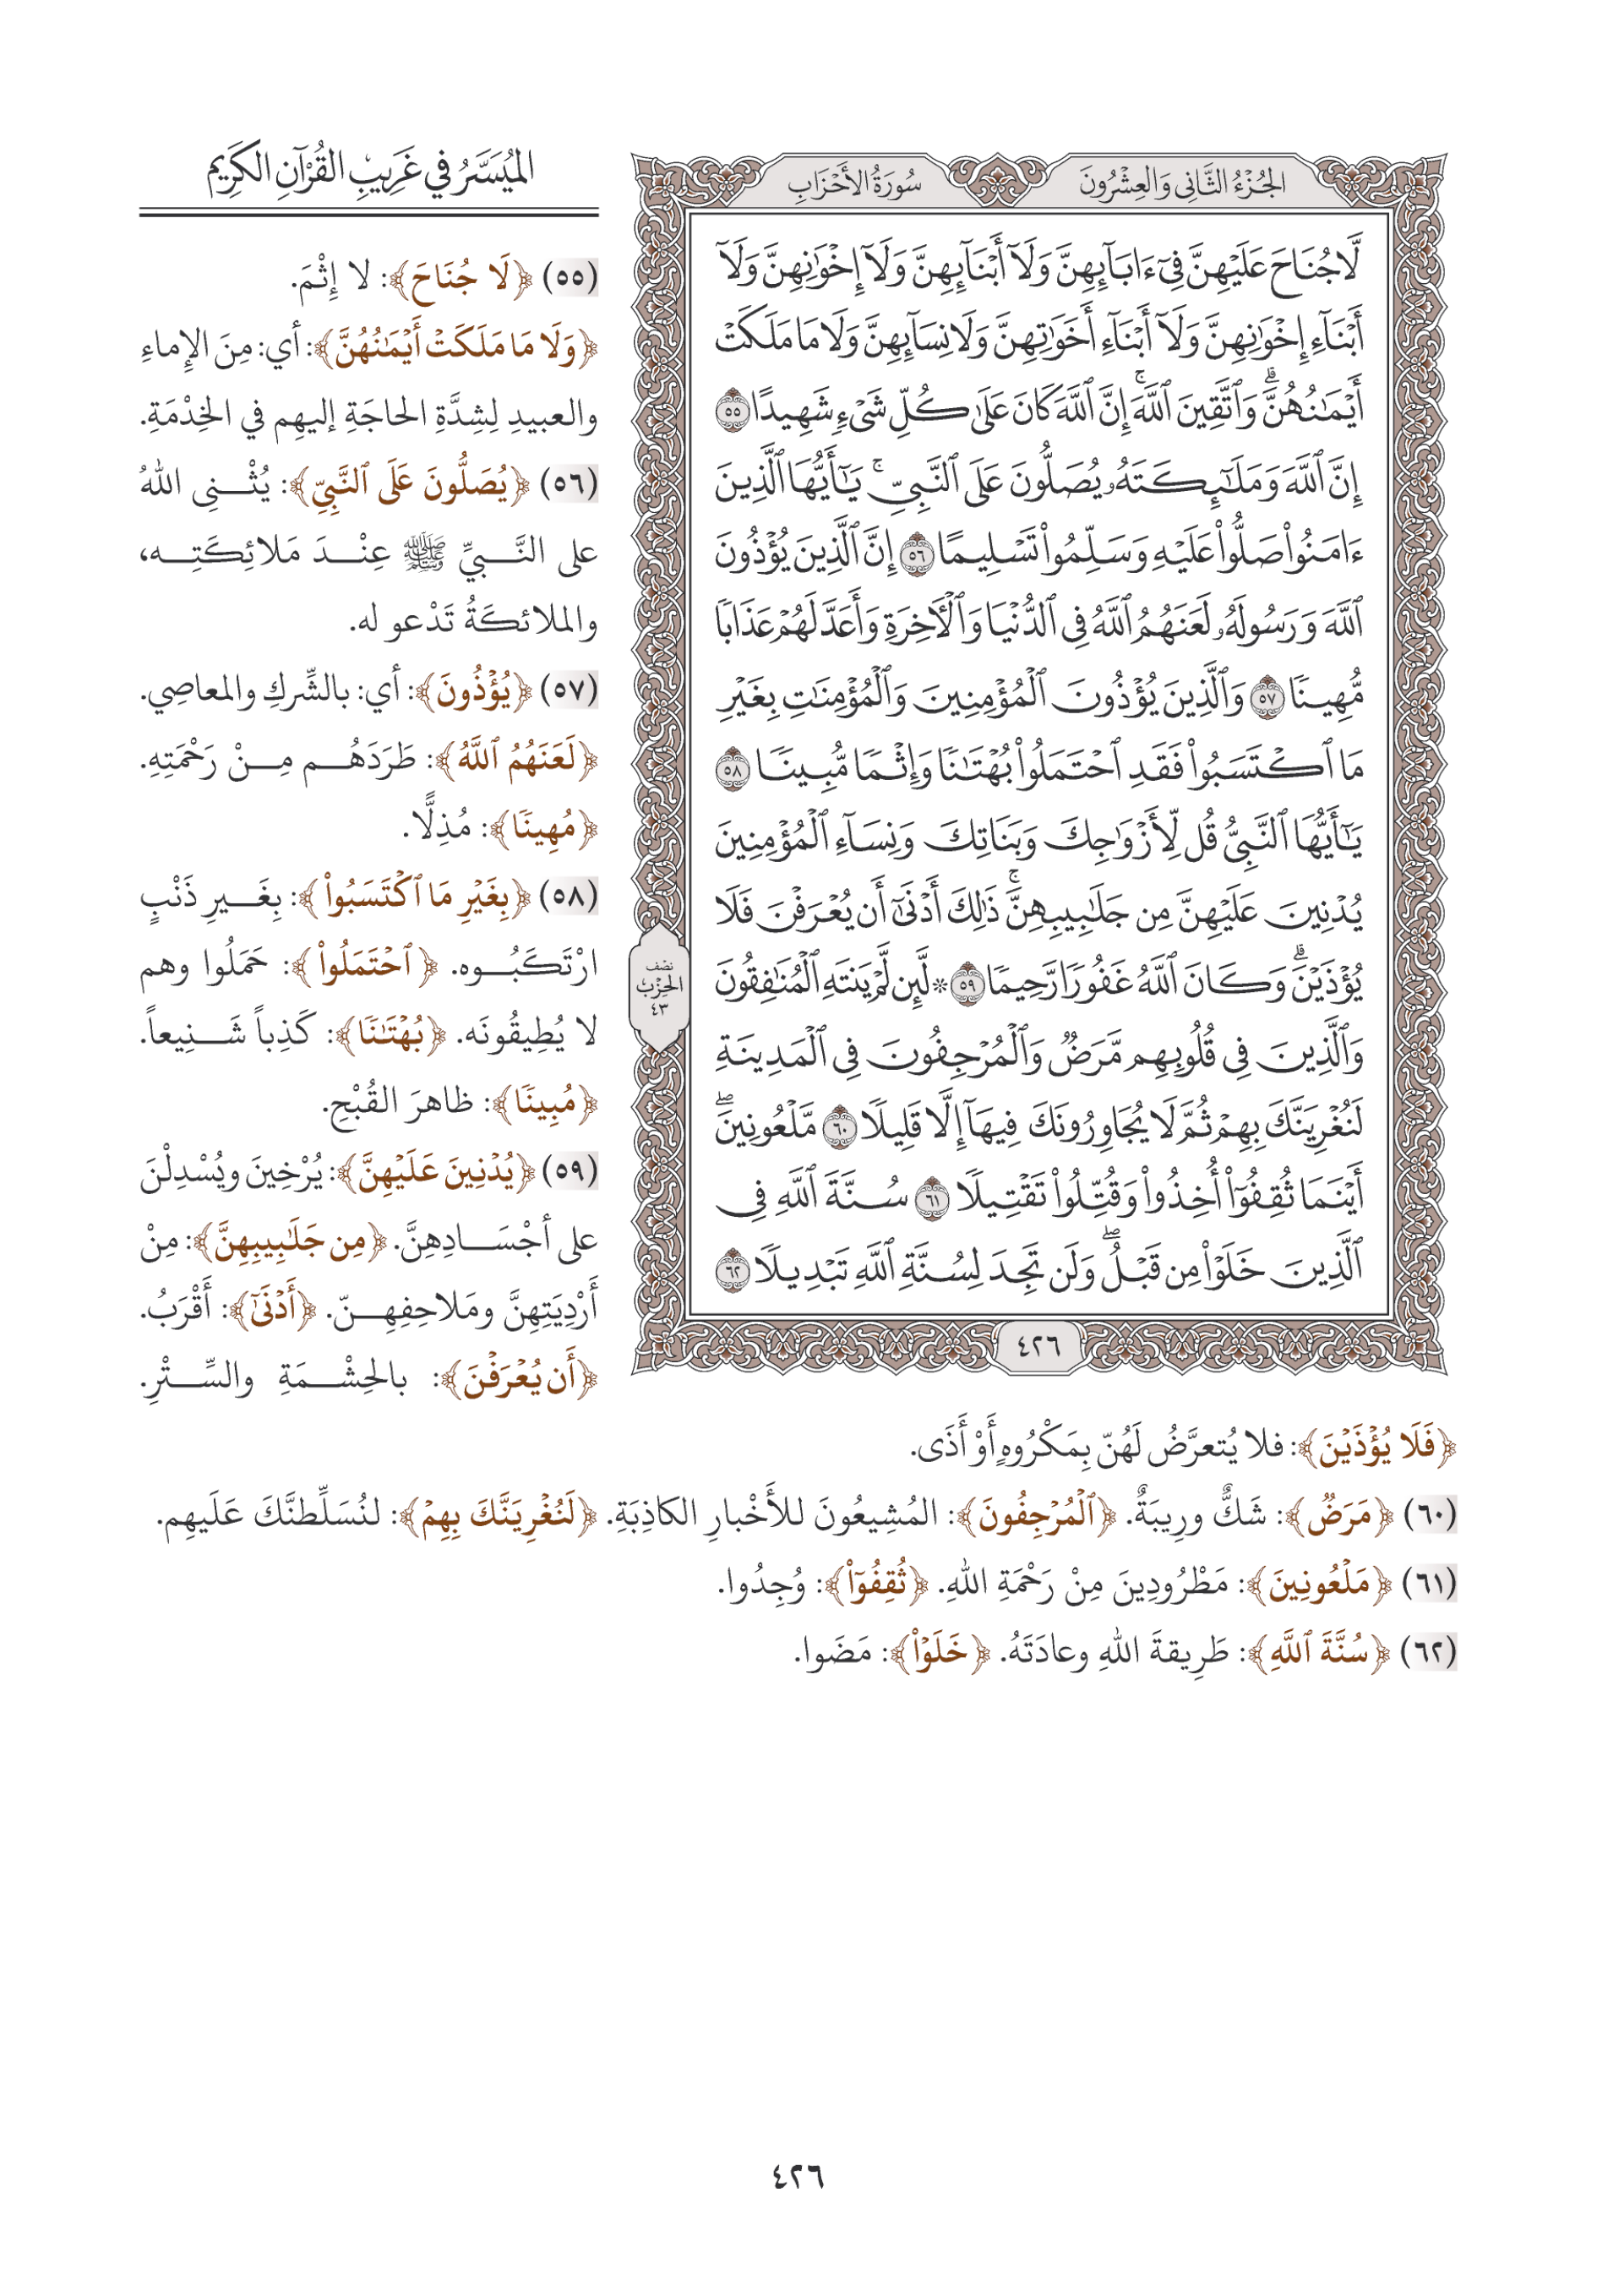 الجُزْءُ الثَّانِي وَالعِشْرُونَ
سُورَةُ الأَحْزَابِ
لَّا جُنَاحَ عَلَيْهِنَّ فِىٓ ءَابَآئِهِنَّ وَلَآ أَبْنَآئِهِنَّ وَلَآ إِخْوَٰنِهِنَّ وَلَآ
أَبْنَآءِ إِخْوَٰنِهِنَّ وَلَآ أَبْنَآءِ أَخَوَٰتِهِنَّ وَلَا نِسَآئِهِنَّ وَلَا مَا مَلَكَتْ
أَيْمَٰنُهُنَّۗ وَٱتَّقِينَ ٱللَّهَۚ إِنَّ ٱللَّهَ كَانَ عَلَىٰ كُلِّ شَىْءٖ شَهِيدًا ٥٥
إِنَّ ٱللَّهَ وَمَلَٰٓئِكَتَهُۥ يُصَلُّونَ عَلَى ٱلنَّبِىِّۚ يَٰٓأَيُّهَا ٱلَّذِينَ
ءَامَنُوا۟ صَلُّوا۟ عَلَيْهِ وَسَلِّمُوا۟ تَسْلِيمًا ٥٦ إِنَّ ٱلَّذِينَ يُؤْذُونَ
ٱللَّهَ وَرَسُولَهُۥ لَعَنَهُمُ ٱللَّهُ فِى ٱلدُّنْيَا وَٱلْأَخِرَةِ وَأَعَدَّ لَهُمْ عَذَابًا
مُّهِينًا ٥٧ وَٱلَّذِينَ يُؤْذُونَ ٱلْمُؤْمِنِينَ وَٱلْمُؤْمِنَٰتِ بِغَيْرِ
مَا ٱكْتَسَبُوا۟ فَقَدِ ٱحْتَمَلُوا۟ بُهْتَٰنًا وَإِثْمًا مُّبِينًا ٥٨
يَٰٓأَيُّهَا ٱلنَّبِىُّ قُل لِّأَزْوَٰجِكَ وَبَنَاتِكَ وَنِسَآءِ ٱلْمُؤْمِنِينَ
يُدْنِينَ عَلَيْهِنَّ مِن جَلَٰبِيبِهِنَّۚ ذَٰلِكَ أَدْنَىٰٓ أَن يُعْرَفْنَ فَلَا
يُؤْذَيْنَۗ وَكَانَ ٱللَّهُ غَفُورًا رَّحِيمًا ٥٩ ۞ لَّئِن لَّمْ يَنتَهِ ٱلْمُنَٰفِقُونَ
وَٱلَّذِينَ فِى قُلُوبِهِم مَّرَضٌ وَٱلْمُرْجِفُونَ فِى ٱلْمَدِينَةِ
لَنُغْرِيَنَّكَ بِهِمْ ثُمَّ لَا يُجَاوِرُونَكَ فِيهَآ إِلَّا قَلِيلًا ٦٠ مَّلْعُونِينَۖ
أَيْنَمَا ثُقِفُوٓا۟ أُخِذُوا۟ وَقُتِّلُوا۟ تَقْتِيلًا ٦١ سُنَّةَ ٱللَّهِ فِى
ٱلَّذِينَ خَلَوْا۟ مِن قَبْلُۖ وَلَن تَجِدَ لِسُنَّةِ ٱللَّهِ تَبْدِيلًا ٦٢
نصْف
الحِزْب
٤٣
٤٢٦
المُيَسَّرُ في غَرِيبِ القُرْآنِ الكَرِيمِ
(٥٥) ﴿لَا جُنَاحَ﴾: لا إِثْمَ.
﴿وَلَا مَا مَلَكَتْ أَيْمَٰنُهُنَّ﴾: أي: مِنَ الإِماءِ
والعبيدِ لِشِدَّةِ الحاجَةِ إليهِم في الخِدْمَةِ.
(٥٦) ﴿يُصَلُّونَ عَلَى ٱلنَّبِيِّ﴾: يُثْنِي اللهُ
على النَّبيِّ ﷺ عِنْدَ مَلائِكَتِه،
والملائكَةُ تَدْعو له.
(٥٧) ﴿يُؤْذُونَ﴾: أي: بالشِّركِ والمعاصِي.
﴿لَعَنَهُمُ ٱللَّهُ﴾: طَرَدَهُم مِنْ رَحْمَتِهِ.
﴿مُهِينًا﴾: مُذِلًّا.
(٥٨) ﴿بِغَيْرِ مَا ٱكْتَسَبُوا۟﴾: بِغَيرِ ذَنْبٍ
ارْتَكَبُوه. ﴿ٱحْتَمَلُوا۟﴾: حَمَلُوا وهم
لا يُطِيقُونَه. ﴿بُهْتَٰنًا﴾: كَذِباً شَنِيعاً.
﴿مُبِينًا﴾: ظاهرَ القُبْحِ.
(٥٩) ﴿يُدْنِينَ عَلَيْهِنَّ﴾: يُرْخِينَ ويُسْدِلْنَ
على أجْسَادِهِنَّ. ﴿مِن جَلَٰبِيبِهِنَّ﴾: مِنْ
أَرْدِيَتِهِنَّ ومَلاحِفِهِنّ. ﴿أَدْنَىٰٓ﴾: أَقْرَبُ.
﴿أَن يُعْرَفْنَ﴾: بالحِشْمَةِ والسِّتْرِ.
﴿فَلَا يُؤْذَيْنَ﴾: فلا يُتعرَّضُ لَهُنّ بِمَكْرُوهٍ أَوْ أَذَى.
(٦٠) ﴿مَرَضٌ﴾: شَكٌّ ورِيبَةٌ. ﴿ٱلْمُرْجِفُونَ﴾: المُشِيعُونَ للأَخْبارِ الكاذِبَةِ. ﴿لَنُغْرِيَنَّكَ بِهِمْ﴾: لنُسَلِّطنَّكَ عَلَيهِم.
(٦١) ﴿مَلْعُونِينَ﴾: مَطْرُودِينَ مِنْ رَحْمَةِ اللهِ. ﴿ثُقِفُوٓا۟﴾: وُجِدُوا.
(٦٢) ﴿سُنَّةَ ٱللَّهِ﴾: طَرِيقةَ اللهِ وعادَتَهُ. ﴿خَلَوْا۟﴾: مَضَوا.
٤٢٦